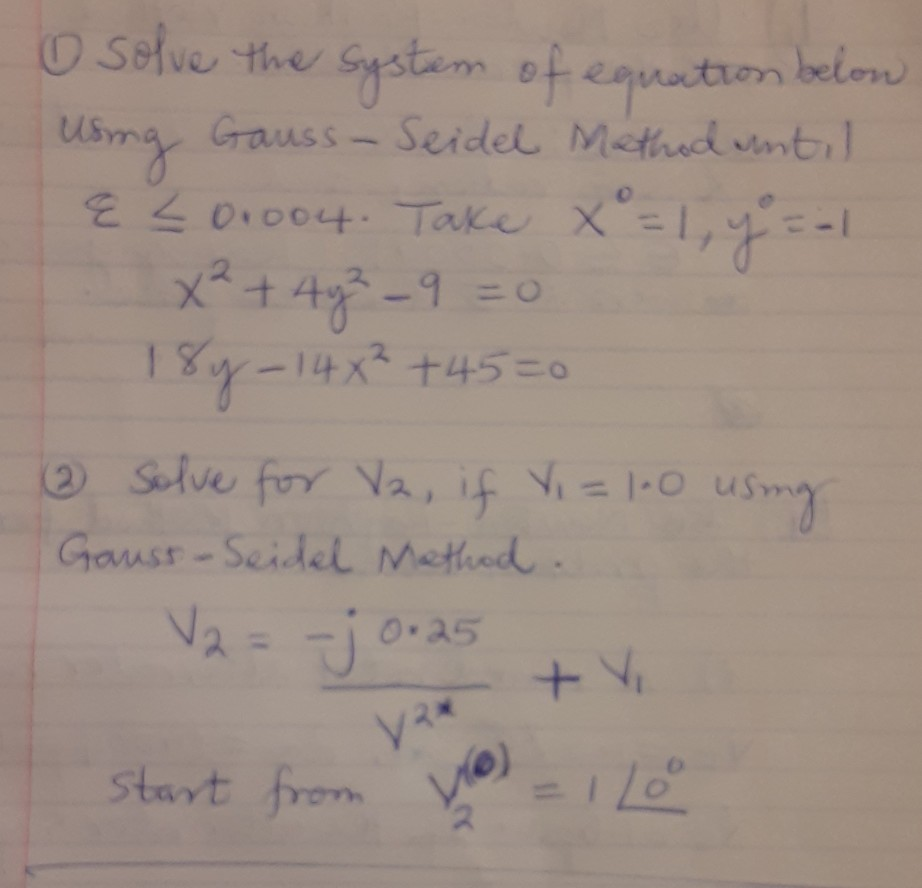 ① Solve the system of equation below
using Gauss-Seidel Method until
ε ≤ 0.004. Take x⁰=1, y⁰=-1
x² + 4y² - 9 = 0
18y - 14x² + 45 = 0
② Solve for V₂, if V₁ = 1.0 using
Gauss-Seidel Method.
V₂ = -j 0.25 / V²* + V₁
Start from V₂⁽⁰⁾ = 1∠0⁰